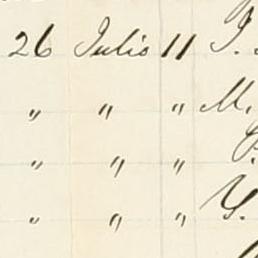 26 Julio 11 J.
" " " M.
" " "
" " " Y.